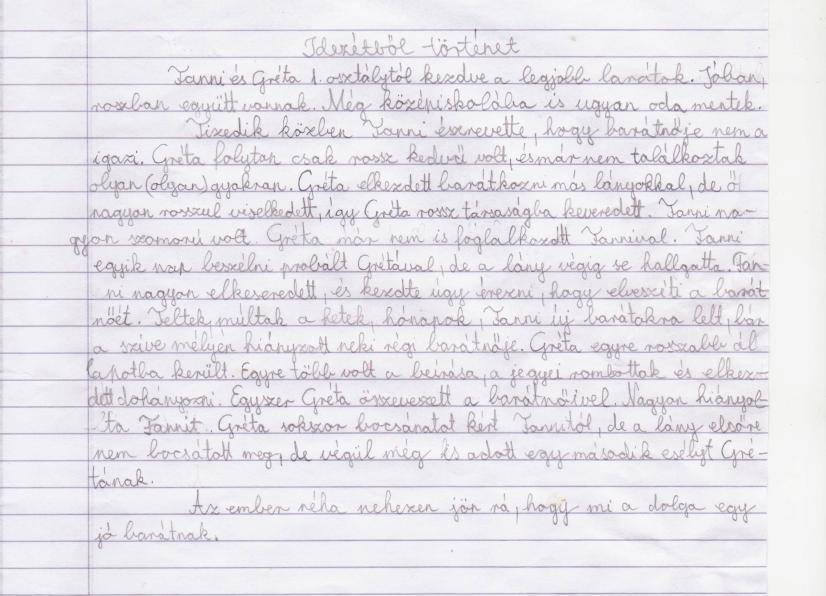 Idezétből történet
Fanni és Gréta 1. osztálytól kezdve a legjobb barátok. Jóban,
roszban együtt vannak. Még középiskolába is ugyan oda mentek.
Tizedik közben Fanni észrevette, hogy barátnője nem a
igazi. Gréta folyton csak rossz kedvű volt, és már nem találkoztak
olyan (olyan) gyakran. Gréta elkezdett barátkozni más lányokkal, de ő
nagyon rosszul viselkedett, így Gréta rossz társaságba keveredett. Fanni na-
gyon szomorú volt. Gréta már nem is foglalkozott Fannival. Fanni
egyik nap beszélni probált Grétával, de a lány végig se hallgatta. Fan-
ni nagyon elkeseredett, és kezdte úgy érezni, hogy elveszíti a barát
nőét. Teltek, múltak a hetek, hónapok, Fanni új barátokra lelt, bár
a szíve mélyén hiányzott neki régi barátnője. Gréta egyre rosszabb ál
lapotba került. Egyre több volt a beírása, a jegyei romlottak és elkez-
dett dohányozni. Egyszer Gréta összeveszett a barátnőivel. Nagyon hiányol-
ta Fannit. Gréta sokszor bocsánatot kért Fannitól, de a lány elsőre
nem bocsátott meg, de végül még is adott egy második esélyt Gré-
tának.
Az ember néha nehezen jön rá, hogy mi a dolga egy
jó barátnak.